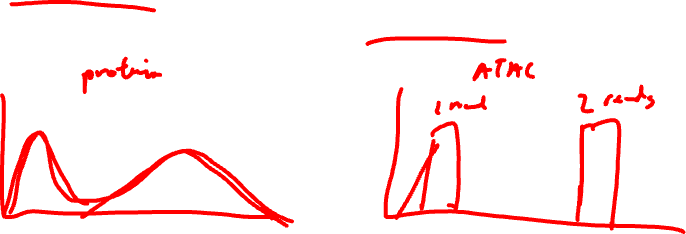 protein
ATAC
1 read
2 reads